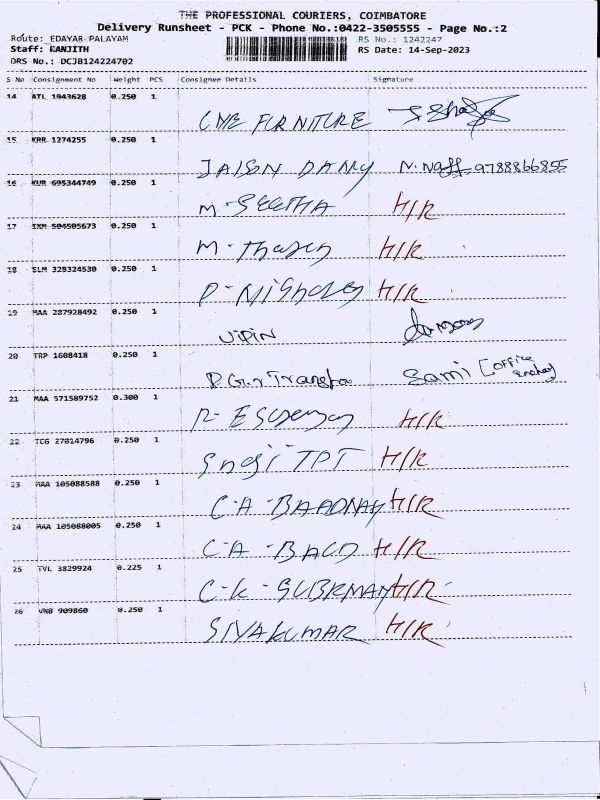 THE PROFESSIONAL COURIERS, COIMBATORE
Delivery Runsheet - PCK - Phone No.:0422-3505555 - Page No.:2
Route: EDAYAR PALAYAM RS No.: 1242247
Staff: KANJITH RS Date: 14-Sep-2023
DRS No.: DCJB124224702
S No Consignment No Weight PCS Consignee Details Signature
14 ATL 1943628 0.250 1
CNE FURNITURE
15 KRR 1274255 0.250 1
JAISON DANY 9788866855
16 KUR 695344749 0.250 1
M-SEETHA H/R
17 504505673 0.250 1
M- H/R
18 SLM 328324530 0.250 1
P- H/R
19 MAA 287928492 0.250 1
VIPIN
20 TRP 1608418 0.250 1
Sami [office
21 MAA 571589752 0.300 1
H/R
22 TCG 27014796 0.250 1
TPT H/R
23 MAA 105088588 0.250 1
C-A- H/R
24 MAA 105088005 0.250 1
C-A- H/R
25 TVL 3829924 0.225 1
C-K-SUBRMANY H/R
26 VNB 909860 0.250 1
SIVAKUMAR H/R